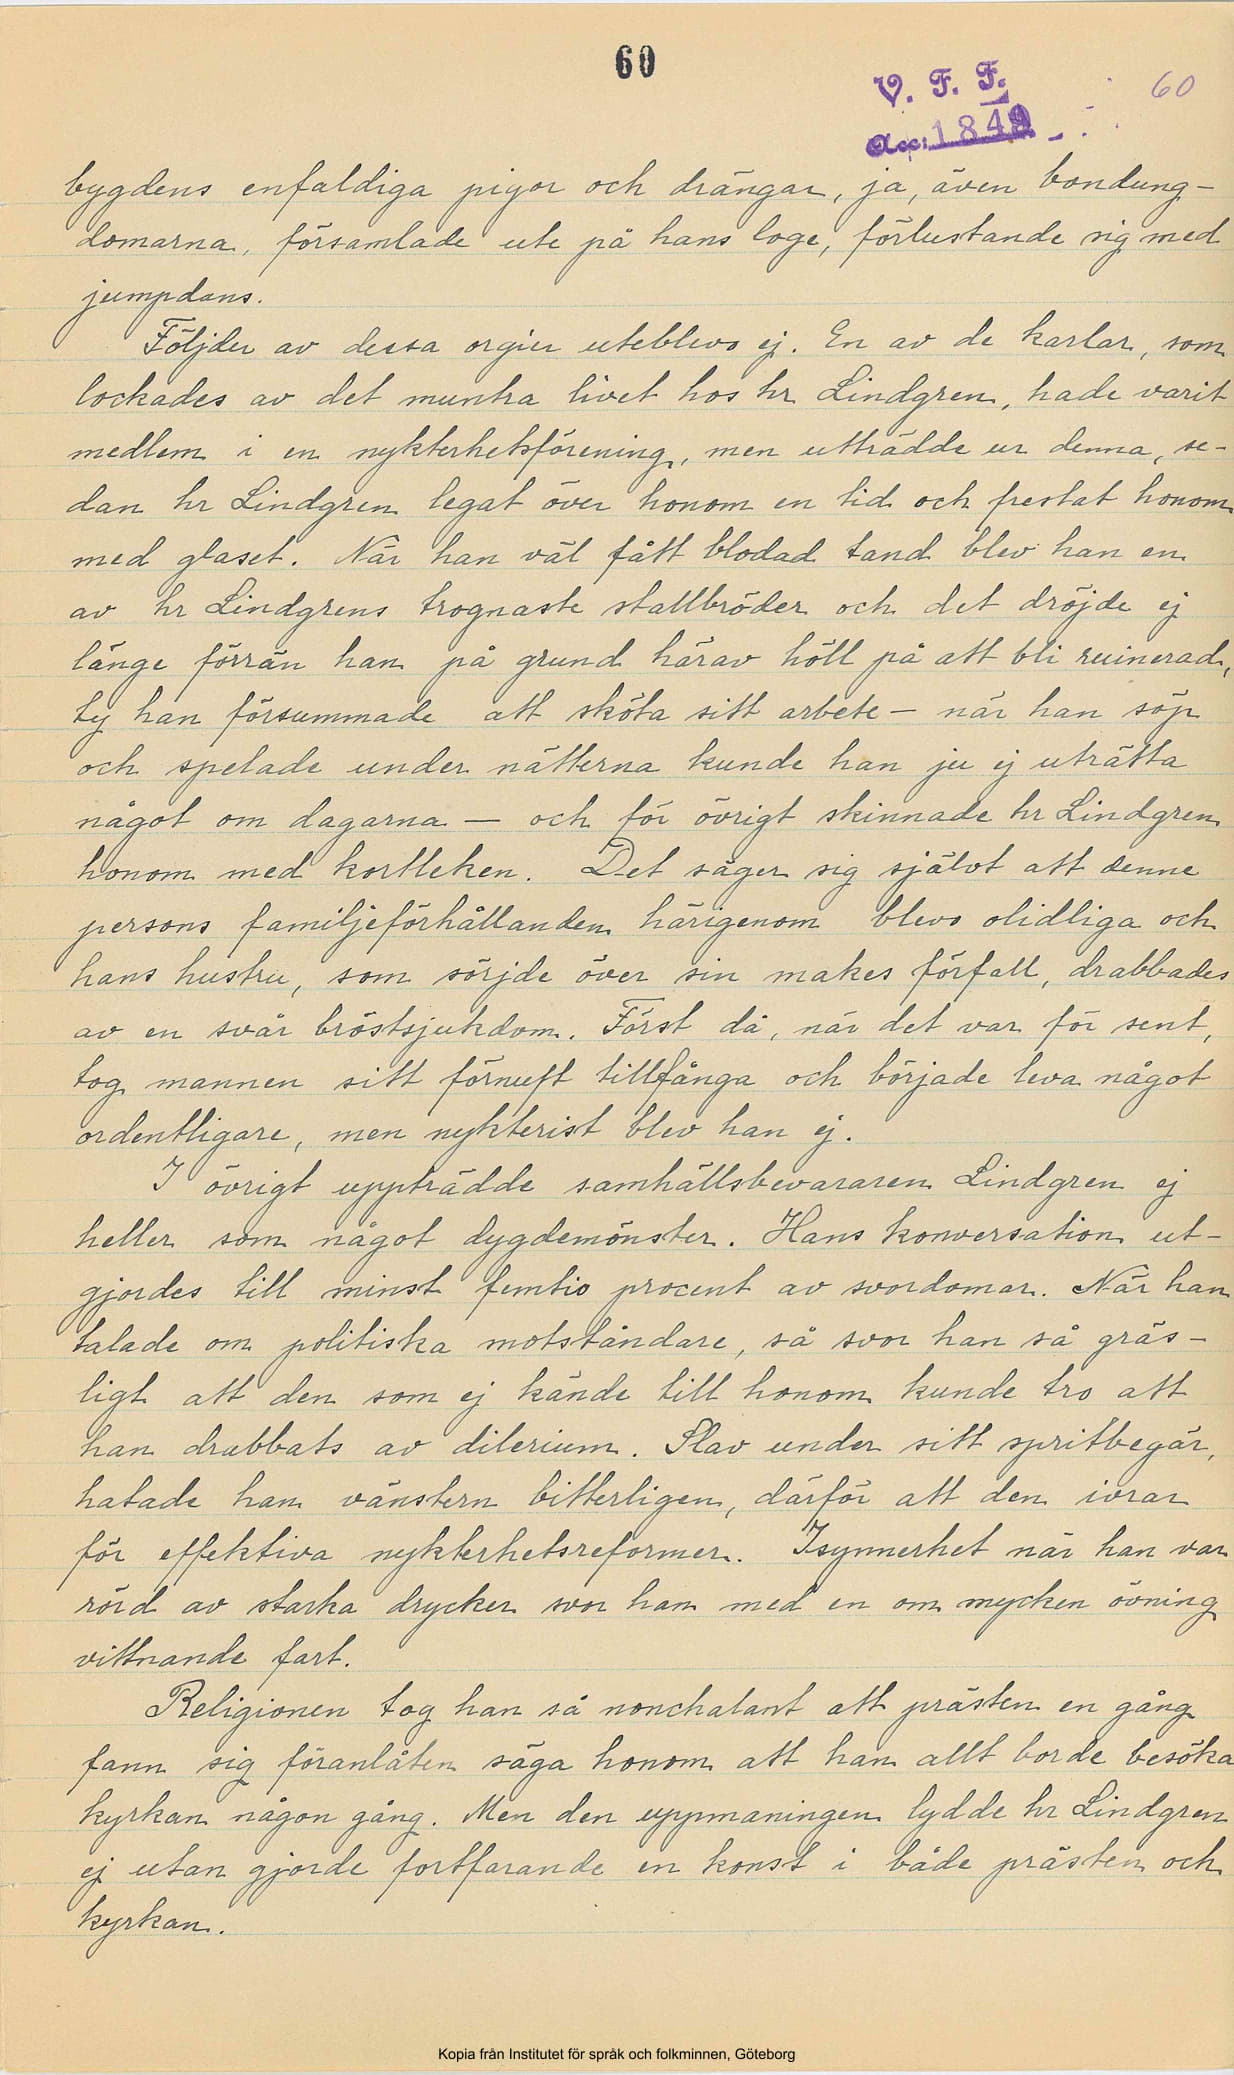 60
V. F. F.
Acc: 1849
60
bygdens enfaldiga pigor och drängar, ja, även bondung-
domarna, församlade ute på hans loge, förlustande sig med
jumpdans.
Följder av dessa orgier uteblevo ej. En av de karlar, som
lockades av det muntra livet hos hr Lindgren, hade varit
medlem i en nykterhetsförening, men utträdde ur denna, se-
dan hr Lindgren legat över honom en tid och frestat honom
med glaset. När han väl fått blodad tand blev han en
av hr Lindgrens trognaste stallbröder och det dröjde ej
länge förrän han på grund härav höll på att bli ruinerad,
ty han försummade att sköta sitt arbete — när han söp
och spelade under nätterna kunde han ju ej uträtta
något om dagarna — och för övrigt skinnade hr Lindgren
honom med kortleken. Det säger sig självt att denne
persons familjeförhållanden härigenom blevo olidliga och
hans hustru, som sörjde över sin makes förfall, drabbades
av en svår bröstsjukdom. Först då, när det var för sent,
tog mannen sitt förnuft tillfånga och började leva något
ordentligare, men nykterist blev han ej.
I övrigt uppträdde samhällsbevararen Lindgren ej
heller som något dygdemönster. Hans konversation ut-
gjordes till minst femtio procent av svordomar. När han
talade om politiska motståndare, så svor han så gräs-
ligt att den som ej kände till honom kunde tro att
han drabbats av dilerium. Slav under sitt spritbegär,
hatade han vänstern bitterligen, därför att den ivrar
för effektiva nykterhetsreformer. Isynnerhet när han var
rörd av starka drycker svor han med en om mycken övning
vittnande fart.
Religionen tog han så nonchalant att prästen en gång
fann sig föranlåten säga honom att han allt borde besöka
kyrkan någon gång. Men den uppmaningen lydde hr Lindgren
ej utan gjorde fortfarande en konst i både prästen och
kyrkan.
Kopia från Institutet för språk och folkminnen, Göteborg